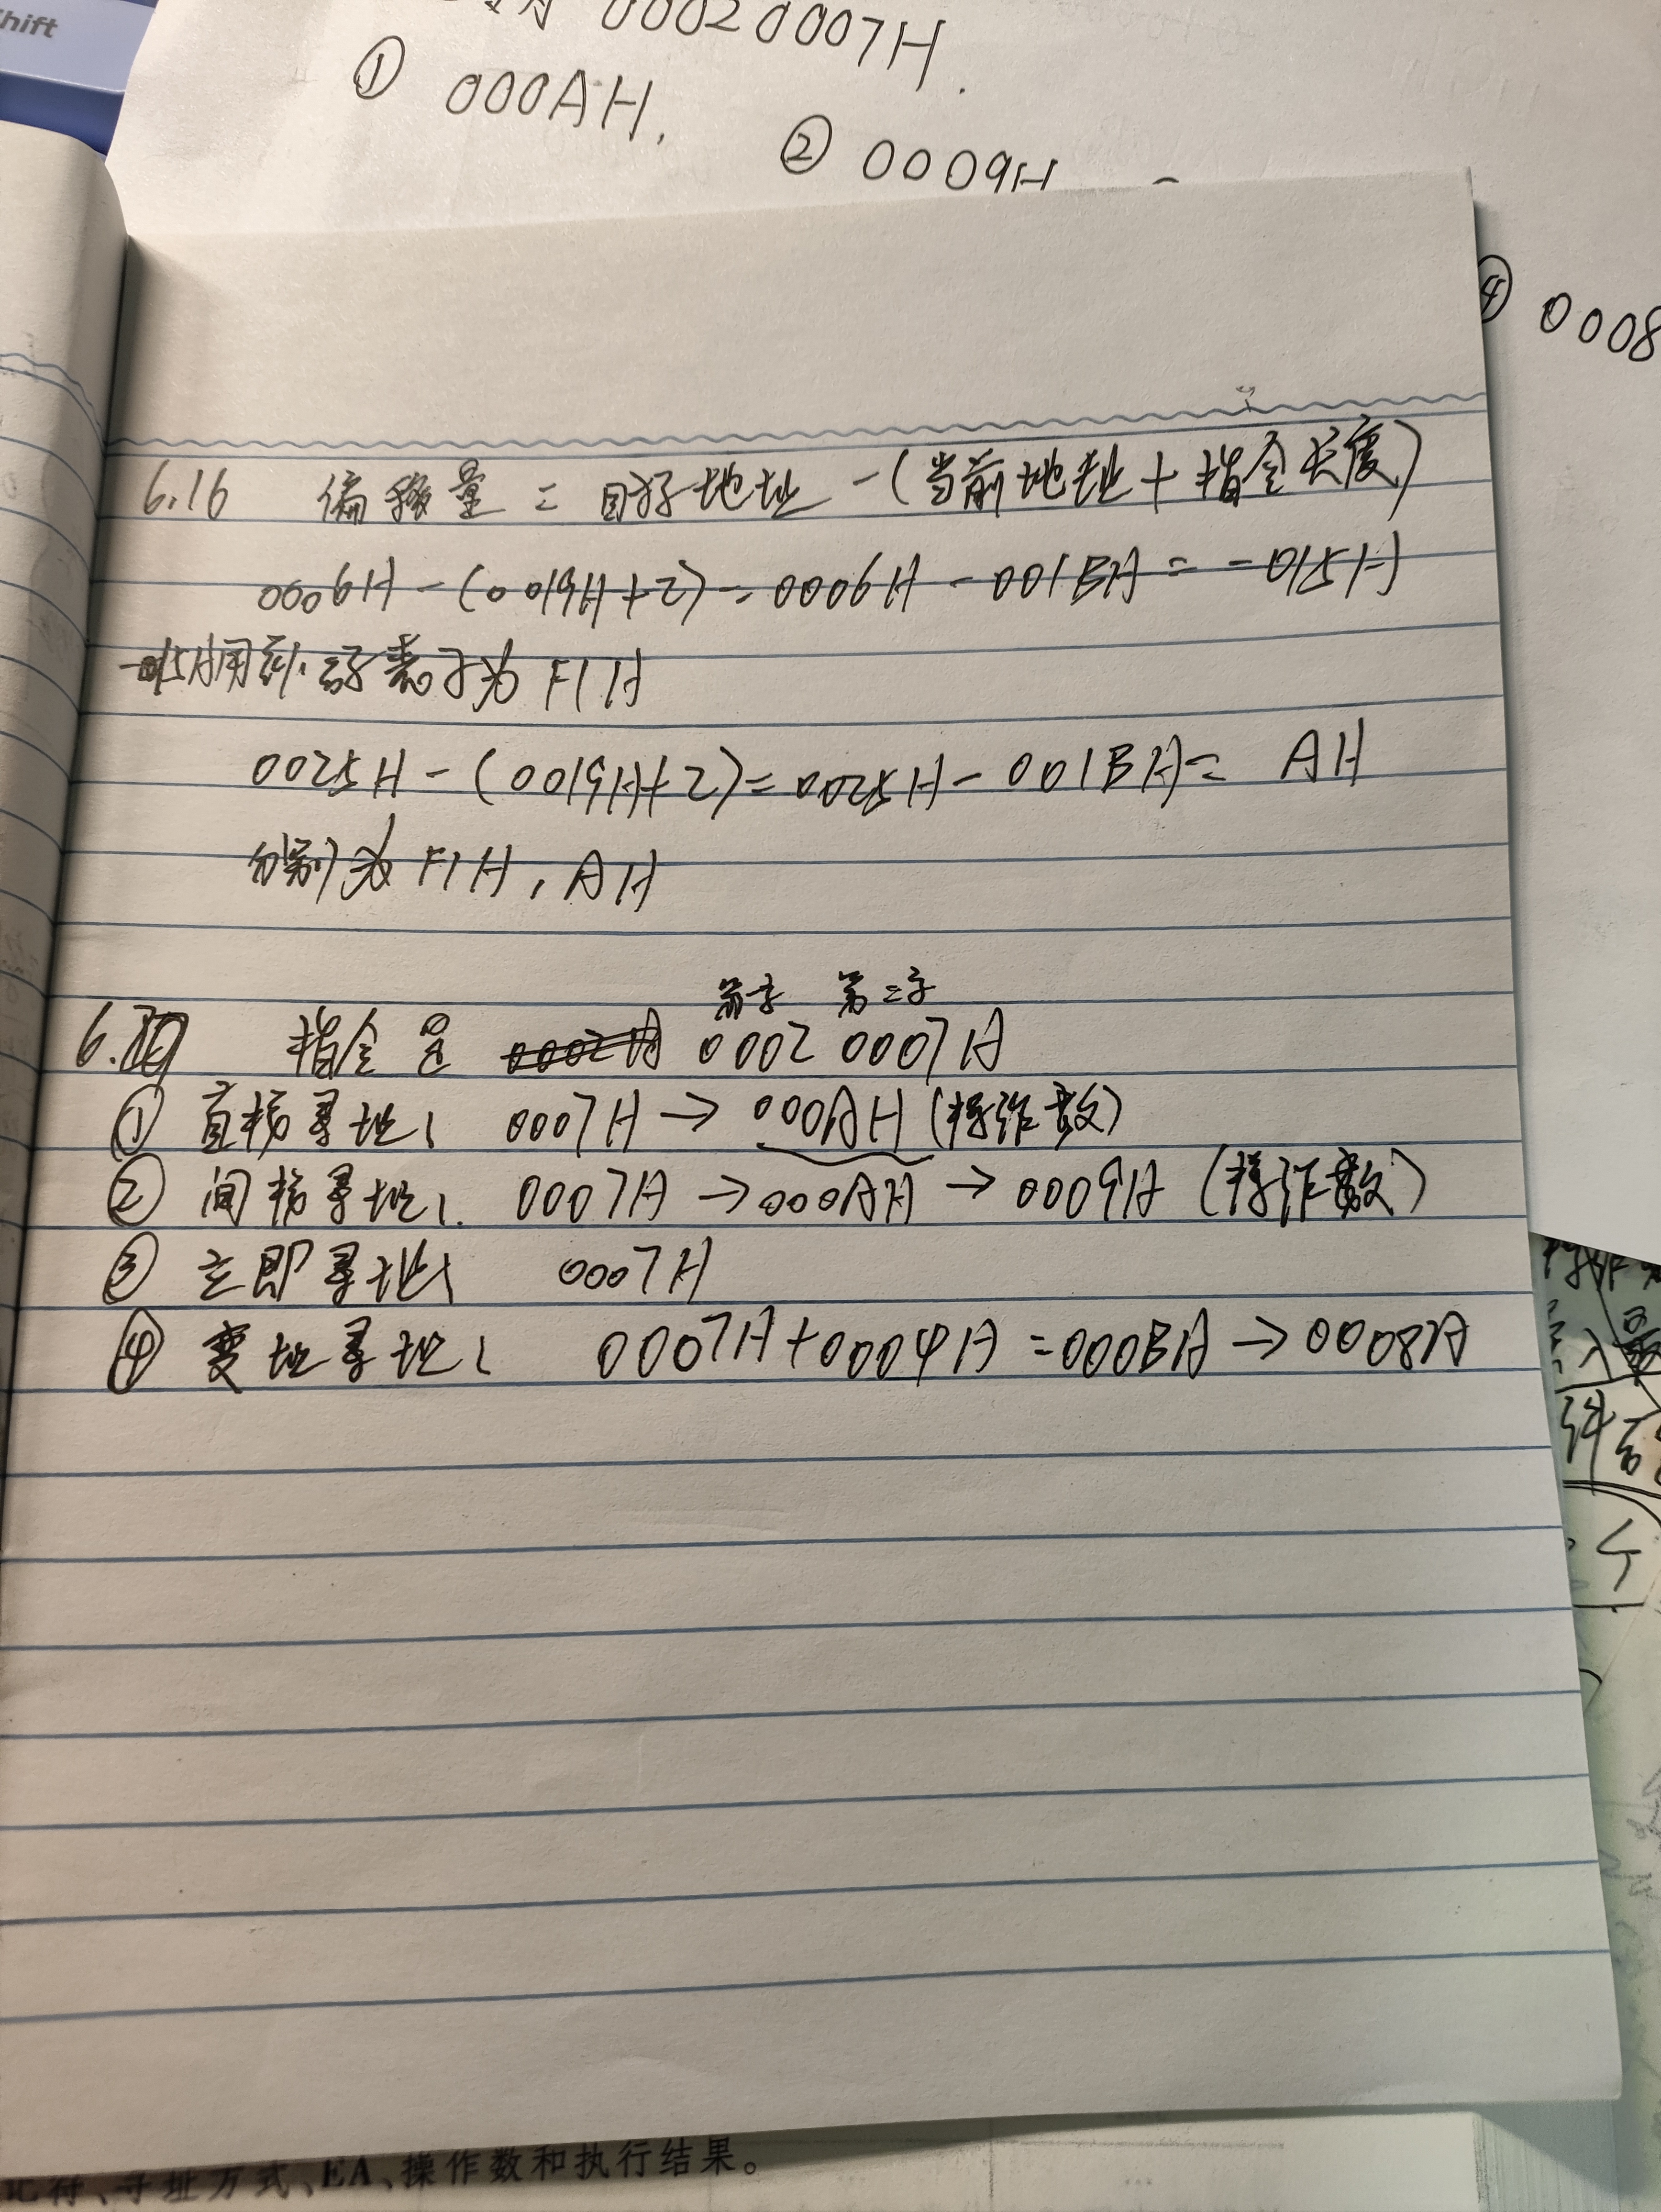 shift
00020007H.
① 000AH.
② 0009H
④ 0008
6.16 偏移量 = 目标地址 - (当前地址 + 指令长度)
0006H - (0019H+2) = 0006H - 001BH = -015H
-015H用补码表示为 F1H
0025H - (0019H+2) = 0025H - 001BH = AH
分别为 F1H, AH
第一字 第二字
指令是 0002 0007H
① 直接寻址: 0007H → 000AH (操作数)
② 间接寻址: 0007H → 000AH → 0009H (操作数)
③ 立即寻址: 0007H
④ 变址寻址: 0007H + 0004H = 000BH → 0008H
寻址方式、EA、操作数和执行结果。